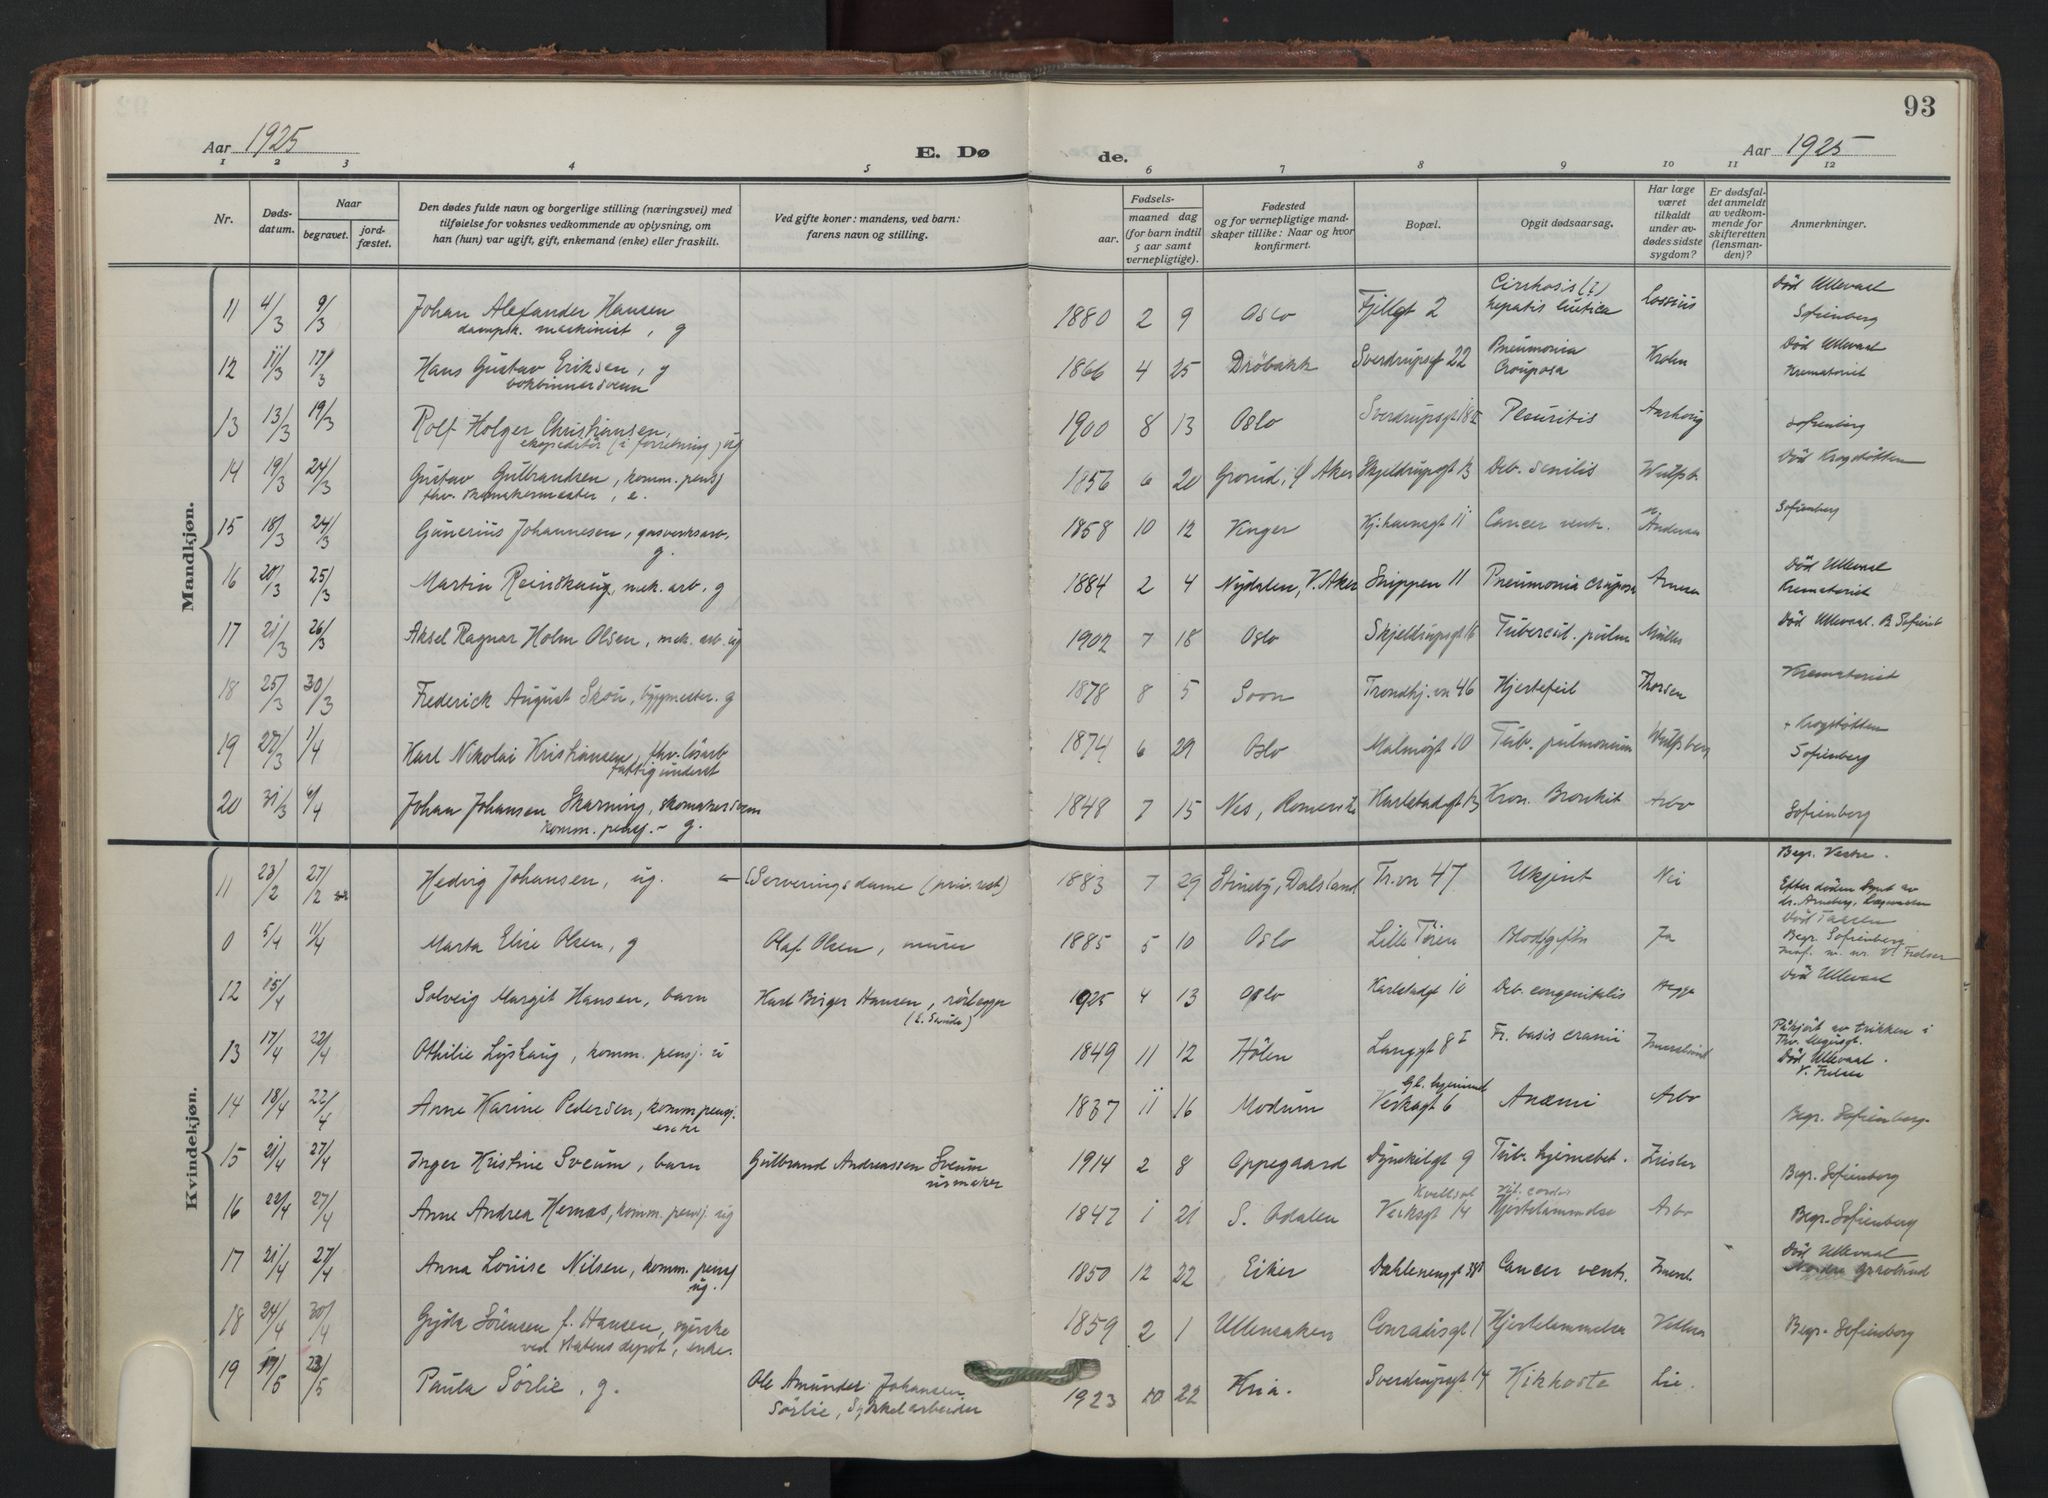 93
Aar 1925
E. Dø
de.
Aar 1925
1 2 3 4 5 6 7 8 9 10 11 12
Nr.
Døds-
datum.
Naar
begravet.
jord-
fæstet.
Den dødes fulde navn og borgerlige stilling (næringsvei) med
tilføielse for voksnes vedkommende av oplysning, om
han (hun) var ugift, gift, enkemand (enke) eller fraskilt.
Ved gifte koner: mandens, ved barn:
farens navn og stilling.
Fødsels-
aar.
maaned dag
(for barn indtil
5 aar samt
vernepligtige).
Fødested
og for vernepligtige mand-
skaper tillike: Naar og hvor
konfirmert.
Bopæl.
Opgit dødsaarsag.
Har læge
været
tilkaldt
under av-
dødes sidste
sygdom?
Er dødsfal-
det anmeldt
av vedkom-
mende for
skifteretten
(lensman-
den)?
Anmerkninger.
Mandkjøn.
11 4/3 9/3 Johan Alexander Hansen 1880 2 9 Oslo Fjellgt 2 Cirrhosis (?) Død Ullevaal
dampsk. maskinist, g hepatis luetica Sofienberg
12 11/3 17/3 Hans Gustav Eriksen, g 1866 4 25 Drøbakk Sverdrupsgt 22 Pneumonia Krohn Død Ullevaal
bokbinnersvenn Crouposa Krematoriet
13 13/3 19/3 Rolf Holger Christiansen, 1900 8 13 Oslo Sverdrupsgt 18 Pleuritis Sofienberg
ekspeditør (i forretning) ug
14 19/3 24/3 Gustav Gulbrandsen, komm. pensj 1856 6 20 Grorud, Ø Aker Skjeldrupsgt 13 Deb. senilis Wulfsb. Død Krogstøtten
fhv. skomakermester, e.
15 18/3 24/3 Gunerius Johannesen, gasverksarb. 1858 10 12 Vinger Kj.havnsgt 11 Cancer ventr. Andersen Sofienberg
g.
16 20/3 25/3 Martin Reinskaug, mek. arb. g 1884 2 4 Nydalen, V. Aker Snippen 11 Pneumonia cruposa Arnesen Død Ullevaal
Krematoriet
17 21/3 26/3 Aksel Ragnar Holm Olsen, mek. arb. ug 1902 7 18 Oslo Skjeldrupsgt 16 Tubercul. pulm Müller Død Ullevaal. B. Sofienb
18 25/3 30/3 Frederick August Skou, byggmester. g 1878 8 5 Soon Trondhj. vn 46 Hjertefeil Thorsen Krematoriet
19 27/3 1/4 Karl Nikolai Kristiansen, fhv. løsarb 1874 6 29 Oslo Malmøgt 10 Tub. pulmonum Wulfsberg + Krogstøtten
fattigunderst Sofienberg
20 31/3 6/4 Johan Johansen Skarning, skomakersvenn 1848 7 15 Nes, Romerike Karlstadgt 13 Kron. Bronkit Arbo Sofienberg
komm. pensj. - g.
Kvindekjøn.
11 23/2 27/2 Hedvig Johansen, ug. ← (Serveringsdame (priv. rest) 1883 7 29 Steneby, Dalsland Tr. vn 47 Ukjent Nei Begr. Vestre.
Efter døden synt av
dr. Arneberg, Lægevakten
0 5/4 11/4 Marta Elise Olsen, g Olaf Olsen, murer 1885 5 10 Oslo Lille Tøien Blodforgiftn Ja Død Taasen
Begr. Sofienberg
12 15/4 Solveig Margit Hansen, barn Karl Birger Hansen, rørlegger 1925 4 13 Oslo Karlstadgt 10 Deb. congenitalis Hegge Død Ullevaal
13 17/4 22/4 Othilie Lyshaug, komm. pensj. u 1849 11 12 Hølen Langgt 8 I Fr. basis cranii Påkjørt av trikken i
Thv. Meyersgt.
Død Ullevaal.
V. Frelser
14 18/4 22/4 Anne Karine Pedersen, komm pensj. 1837 11 16 Modum Verksgt 6 Anæmi Arbo Begr. Sofienberg.
enke
15 21/4 27/4 Inger Kristine Sveum, barn Gulbrand Andreassen Sveum 1914 2 8 Oppegaard Dynekilgt 9 Tub. hjernebet. Begr. Sofienberg
urmaker
16 22/4 27/4 Anne Andrea Hernæs, komm. pensj. ug 1847 1 21 S. Odalen Verksgt 14 Hjertelammelse Arbo Begr. Sofienberg
17 21/4 27/4 Anna Louise Nilsen, komm. pensj 1850 12 22 Eiker Dahlenenggt 38 Cancer ventr. Død Ullevaal
ug. Nordre gravlund
18 24/4 30/4 Gyda Sørensen f. Hansen, syerske 1859 2 1 Ullensaker Conradisgt 1 Hjertelammelse Begr. Sofienberg
ved Statens depot, enke.
19 17/5 23/5 Paula Sørlie, g. Ole Amunder Johansen 1923 10 22 Kria. Sverdrupsgt 14 Kikhoste Lie.
Sørlie, Sykkelarbeider